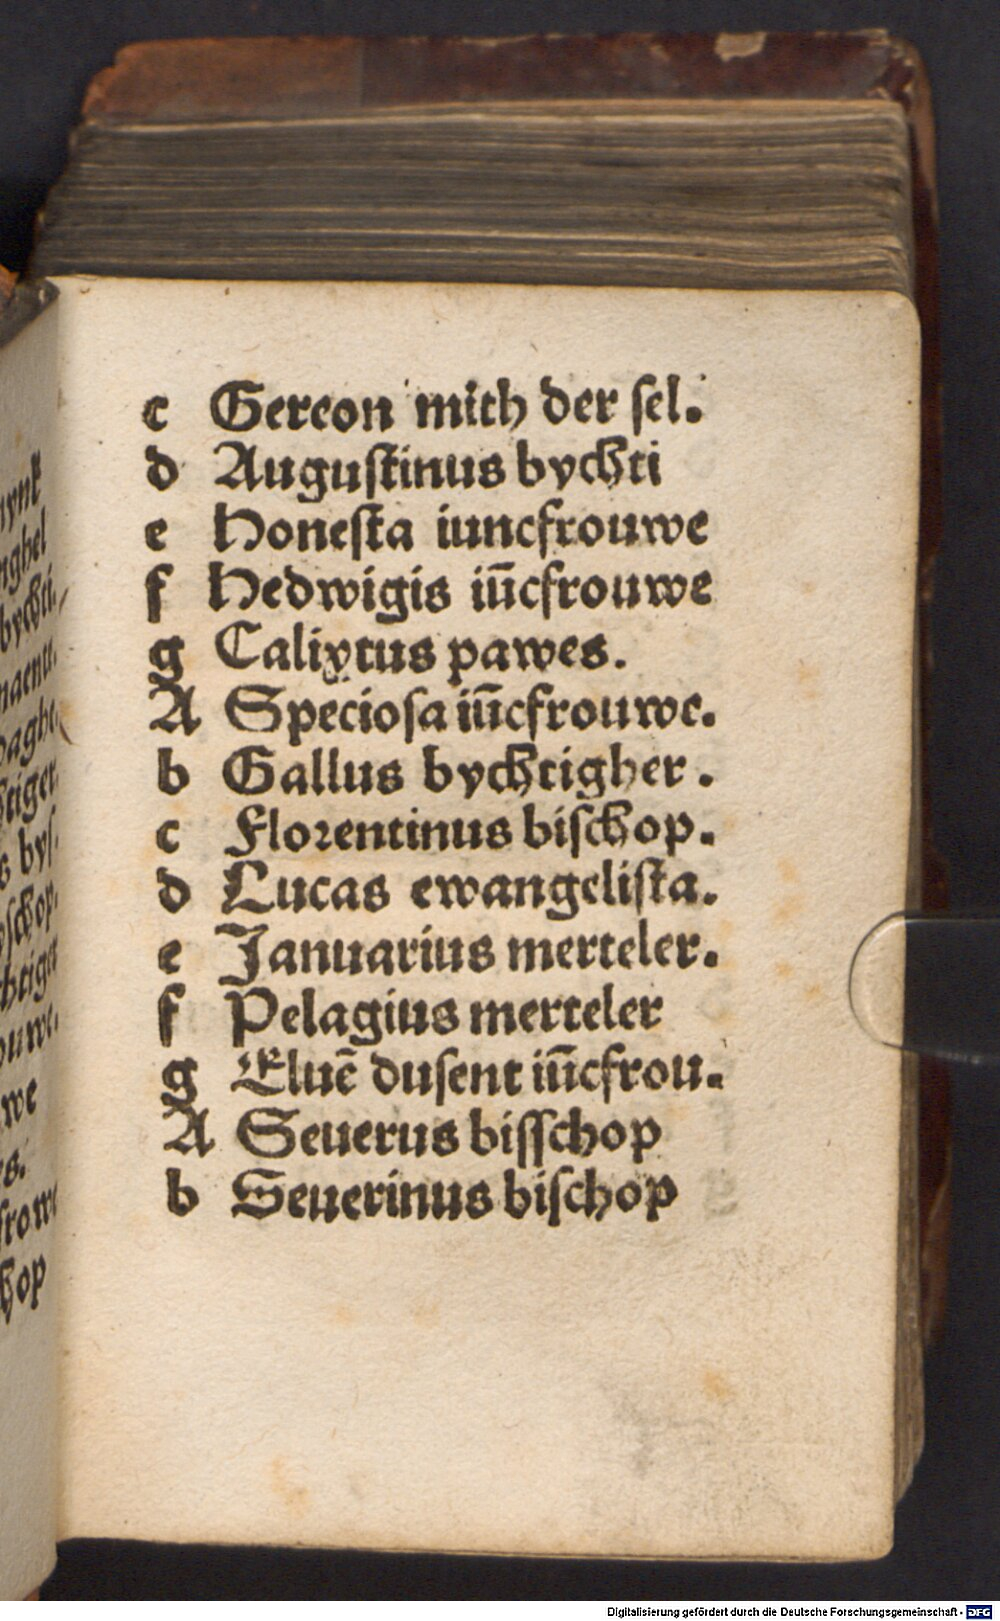 c Gereon mith der sel.
d Augustinus bychti
e Honesta iuncfrouwe
f Hedwigis iūcfrouwe
g Calixtus pawes.
A Speciosa iūcfrouwe.
b Gallus bychtigher.
c Florentinus bischop.
d Lucas ewangelista.
e Januarius merteler.
f Pelagius merteler
g Eluē dusent iūcfrou.
A Seuerus bisschop
b Seuerinus bischop
Digitalisierung gefördert durch die Deutsche Forschungsgemeinschaft - DFG